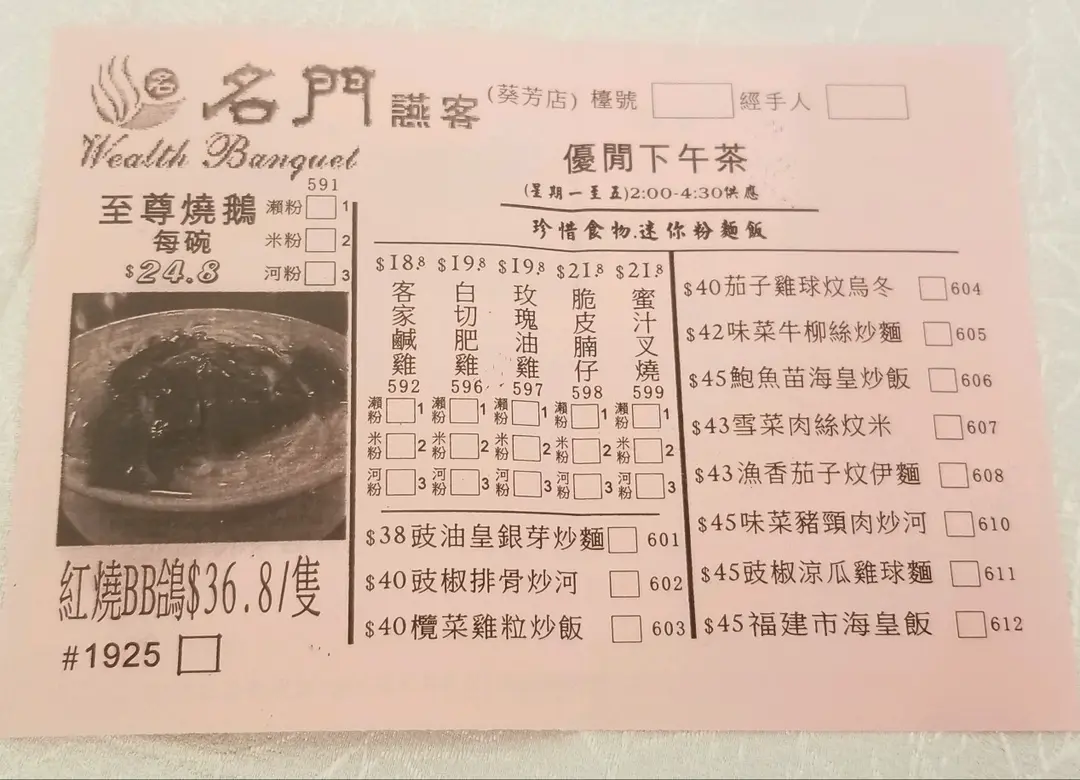 名門讌客 (葵芳店) 檯號 經手人
Wealth Banquet
優閒下午茶
(星期一至五)2:00-4:30供應
珍惜食物.迷你粉麵飯
591
至尊燒鵝
每碗
$24.8
瀨粉 1
米粉 2
河粉 3
紅燒BB鴿$36.8/隻
#1925
$18.8 $19.8 $19.8 $21.8 $21.8
客家鹹雞
592
瀨粉 1
米粉 2
河粉 3
白切肥雞
596
瀨粉 1
米粉 2
河粉 3
玫瑰油雞
597
瀨粉 1
米粉 2
河粉 3
脆皮腩仔
598
瀨粉 1
米粉 2
河粉 3
蜜汁叉燒
599
瀨粉 1
米粉 2
河粉 3
$38豉油皇銀芽炒麵 601
$40豉椒排骨炒河 602
$40欖菜雞粒炒飯 603
$40茄子雞球炆烏冬 604
$42味菜牛柳絲炒麵 605
$45鮑魚苗海皇炒飯 606
$43雪菜肉絲炆米 607
$43漁香茄子炆伊麵 608
$45味菜豬頸肉炒河 610
$45豉椒涼瓜雞球麵 611
$45福建市海皇飯 612